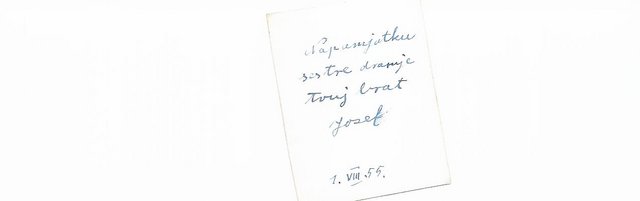 Napamjatku
sestre dramje
tvuj brat
Josef
1. VIII. 55.